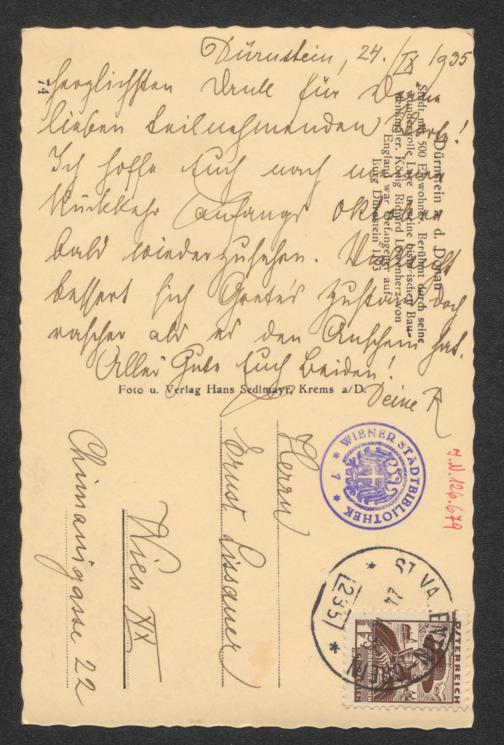 Dürnstein, 24./IX 1935
herzlichsten Dank für Deine
lieben teilnehmenden Worte!
Ich hoffe Euch nach meiner
Rückkehr Anfangs Oktober
bald wiederzusehen. Vielleicht
bessert sich Grete's Zustand doch
rascher als es den Anschein hat.
Alles Gute Euch beiden!
Deine R
74
Dürnstein a. d. Donau
Stadt mit 500 Einwohner. Berühmt durch seine
wundervolle Lage und seine historischen Bau-
denkmäler. König Richard Löwenherz von
England war Gefangener auf
Burg Dürnstein 1193
Foto u. Verlag Hans Sedlmayr, Krems a/D.
WIENER STADTBIBLIOTHEK
* 7 *
J.N. 126.679
Herrn
Ernst Lissauer
Wien XIX
Chimanigasse 22
ST VALENTIN
235
ÖSTERREICH